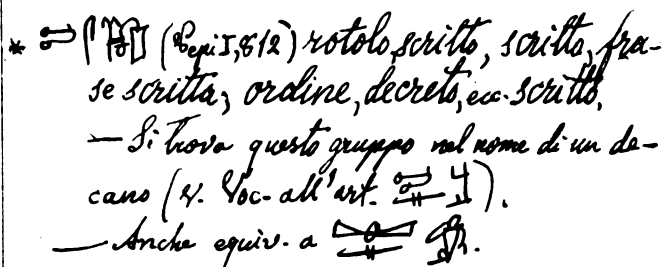 * (Pepi I, 812) rotolo, scritto, scritta, fra-
se scritta, ordine, decreto, ecc. scritto.
— Si trova questo gruppo nel nome di un de-
cano (V. Voc. all'art. ).
— Anche equiv. a .